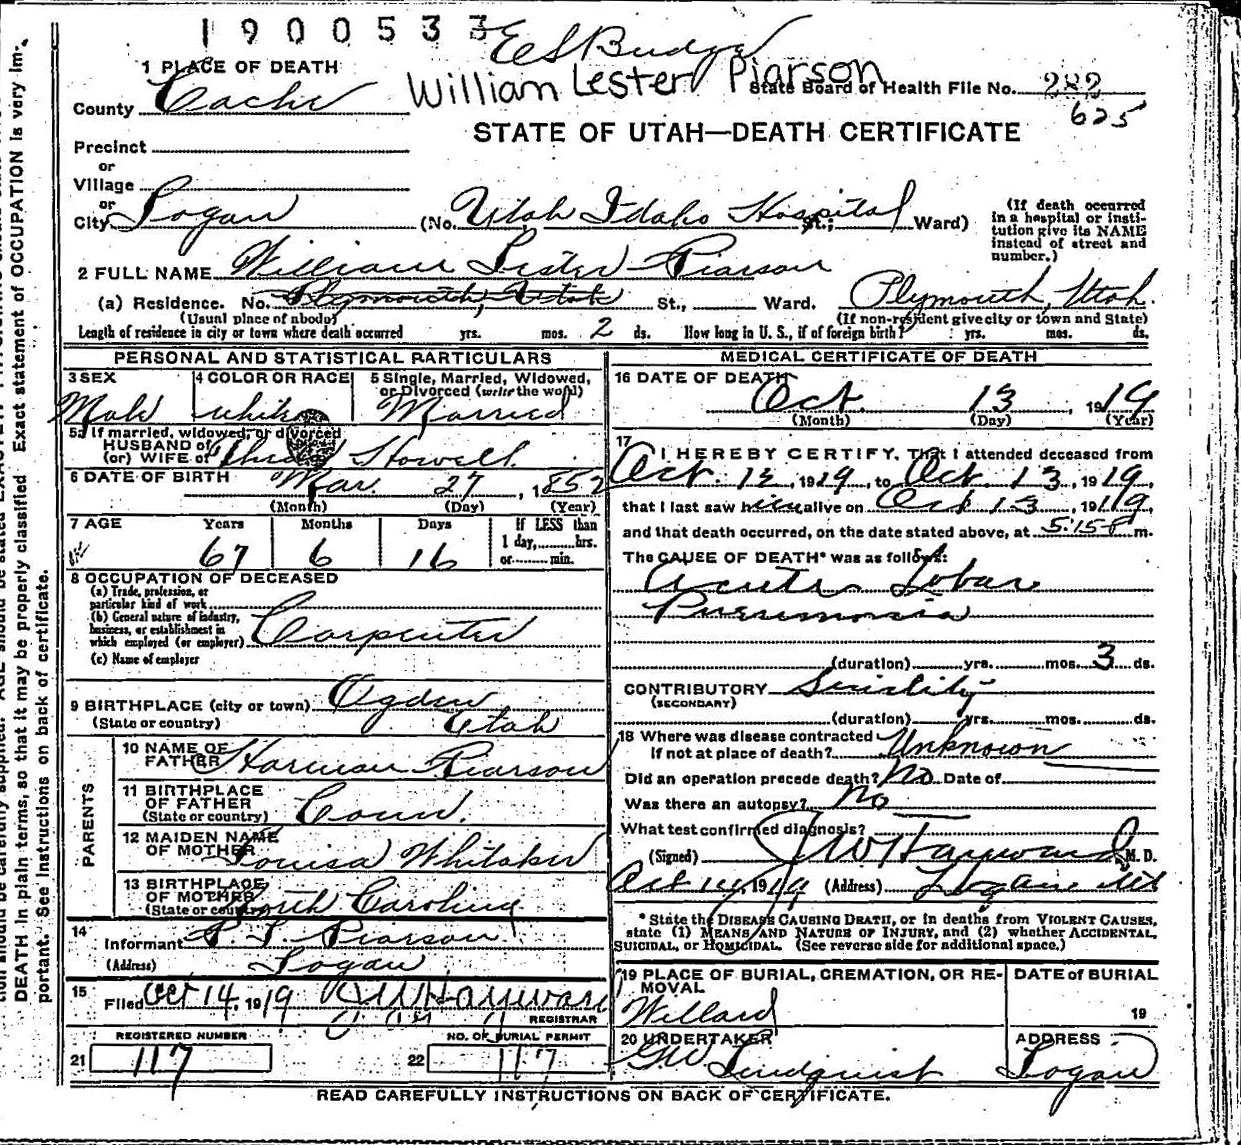 1900533
E S Budge
William Lester Piarson
1 PLACE OF DEATH
County Cache
State Board of Health File No. 282
625
STATE OF UTAH—DEATH CERTIFICATE
Precinct
or
Village
or
City Logan (No. Utah Idaho Hospital St.; Ward)
(If death occurred in a hospital or institution give its NAME instead of street and number.)
2 FULL NAME William Lester Piarson
(a) Residence. No. Plymouth, Utah St., Ward. Plymouth, Utah.
(Usual place of abode) (If non-resident give city or town and State)
Length of residence in city or town where death occurred yrs. mos. 2 ds. How long in U. S., if of foreign birth? yrs. mos. ds.
PERSONAL AND STATISTICAL PARTICULARS
3 SEX 4 COLOR OR RACE 5 Single, Married, Widowed, or Divorced (write the word)
Male white Married
5a If married, widowed, or divorced
HUSBAND of
(or) WIFE of Stowell
6 DATE OF BIRTH Mar. 27, 1852
(Month) (Day) (Year)
7 AGE Years Months Days If LESS than
1 day,.........hrs.
or.........min.
67 6 16
8 OCCUPATION OF DECEASED
(a) Trade, profession, or
particular kind of work
(b) General nature of industry,
business, or establishment in
which employed (or employer) Carpenter
(c) Name of employer
9 BIRTHPLACE (city or town) Ogden
(State or country) Utah
PARENTS
10 NAME OF
FATHER Harmon Piarson
11 BIRTHPLACE
OF FATHER
(State or country) Conn.
12 MAIDEN NAME
OF MOTHER Louisa Whitaker
13 BIRTHPLACE
OF MOTHER
(State or country) North Carolina
14
Informant P. L. Piarson
(Address) Logan
15
Filed Oct 14, 1919 Hayward
REGISTRAR
REGISTERED NUMBER NO. OF BURIAL PERMIT
21 117 22 117
MEDICAL CERTIFICATE OF DEATH
16 DATE OF DEATH
Oct. 13, 1919
(Month) (Day) (Year)
17
I HEREBY CERTIFY, That I attended deceased from
Oct. 12, 1919, to Oct. 13, 1919,
that I last saw him alive on Oct 13, 1919,
and that death occurred, on the date stated above, at 5:15 P m.
The CAUSE OF DEATH* was as follows:
Acute Lobar
Pneumonia
(duration) yrs. mos. 3 ds.
CONTRIBUTORY Senility
(SECONDARY)
(duration) yrs. mos. ds.
18 Where was disease contracted
If not at place of death? Unknown
Did an operation precede death? No Date of
Was there an autopsy? No
What test confirmed diagnosis?
(Signed) J W Hayward M. D.
Oct 14, 1919 (Address) Logan Ut
* State the DISEASE CAUSING DEATH, or in deaths from VIOLENT CAUSES,
state (1) MEANS AND NATURE OF INJURY, and (2) whether ACCIDENTAL,
SUICIDAL, or HOMICIDAL. (See reverse side for additional space.)
19 PLACE OF BURIAL, CREMATION, OR RE-
MOVAL
Willard
DATE of BURIAL
19
20 UNDERTAKER
GW Lindquist
ADDRESS
Logan
READ CAREFULLY INSTRUCTIONS ON BACK OF CERTIFICATE.
DEATH in plain terms, so that it may be properly classified. Exact statement of OCCUPATION is very im-
portant. See Instructions on back of certificate.